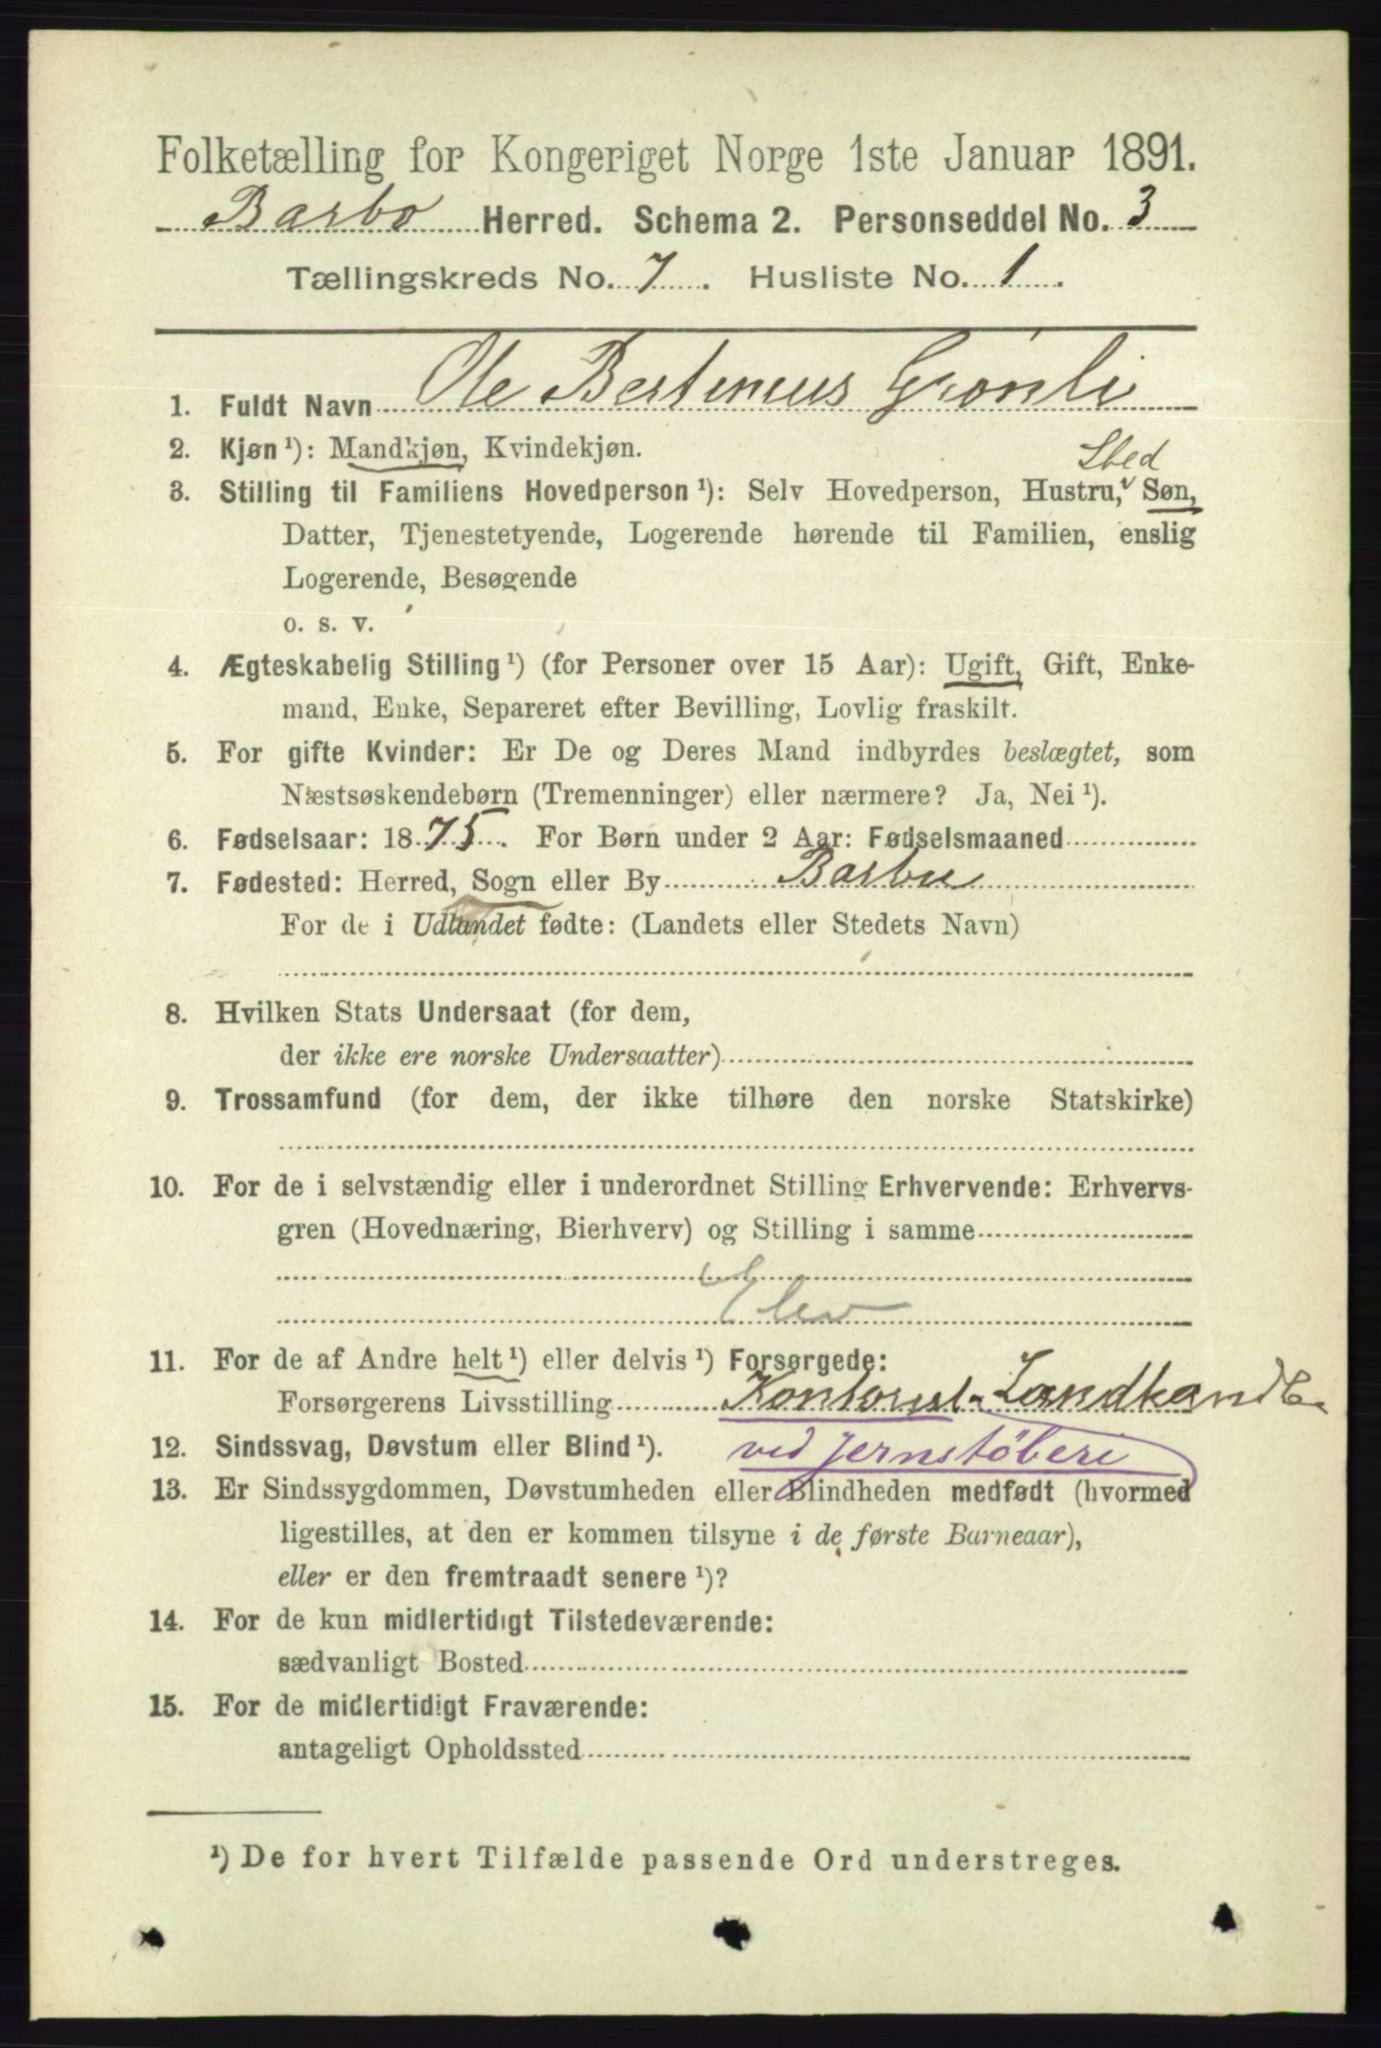 Folketælling for Kongeriget Norge 1ste Januar 1891.
Barbo Herred. Schema 2. Personseddel No. 3
Tællingskreds No. 7. Husliste No. 1.
1. Fuldt Navn Ole Bertinius Grønli
2. Kjøn ¹): Mandkjøn, Kvindekjøn.
Sted
3. Stilling til Familiens Hovedperson ¹): Selv Hovedperson, Hustru, Søn,
Datter, Tjenestetyende, Logerende hørende til Familien, enslig
Logerende, Besøgende
o. s. v.
4. Ægteskabelig Stilling ¹) (for Personer over 15 Aar): Ugift, Gift, Enke-
mand, Enke, Separeret efter Bevilling, Lovlig fraskilt.
5. For gifte Kvinder: Er De og Deres Mand indbyrdes beslægtet, som
Næstsøskendebørn (Tremenninger) eller nærmere? Ja, Nei ¹).
6. Fødselsaar: 1875. For Børn under 2 Aar: Fødselsmaaned
7. Fødested: Herred, Sogn eller By Barbu
For de i Udlandet fødte: (Landets eller Stedets Navn)
8. Hvilken Stats Undersaat (for dem,
der ikke ere norske Undersaatter)
9. Trossamfund (for dem, der ikke tilhøre den norske Statskirke)
10. For de i selvstændig eller i underordnet Stilling Erhvervende: Erhvervs-
gren (Hovednæring, Bierhverv) og Stilling i samme
Elev
11. For de af Andre helt ¹) eller delvis ¹) Forsørgede:
Forsørgerens Livsstilling Kontorist - Landhandl.
12. Sindssvag, Døvstum eller Blind ¹). ved jernstøberi
13. Er Sindssygdommen, Døvstumheden eller Blindheden medfødt (hvormed
ligestilles, at den er kommen tilsyne i de første Barneaar),
eller er den fremtraadt senere ¹)?
14. For de kun midlertidigt Tilstedeværende:
sædvanligt Bosted
15. For de midlertidigt Fraværende:
antageligt Opholdssted
¹) De for hvert Tilfælde passende Ord understreges.